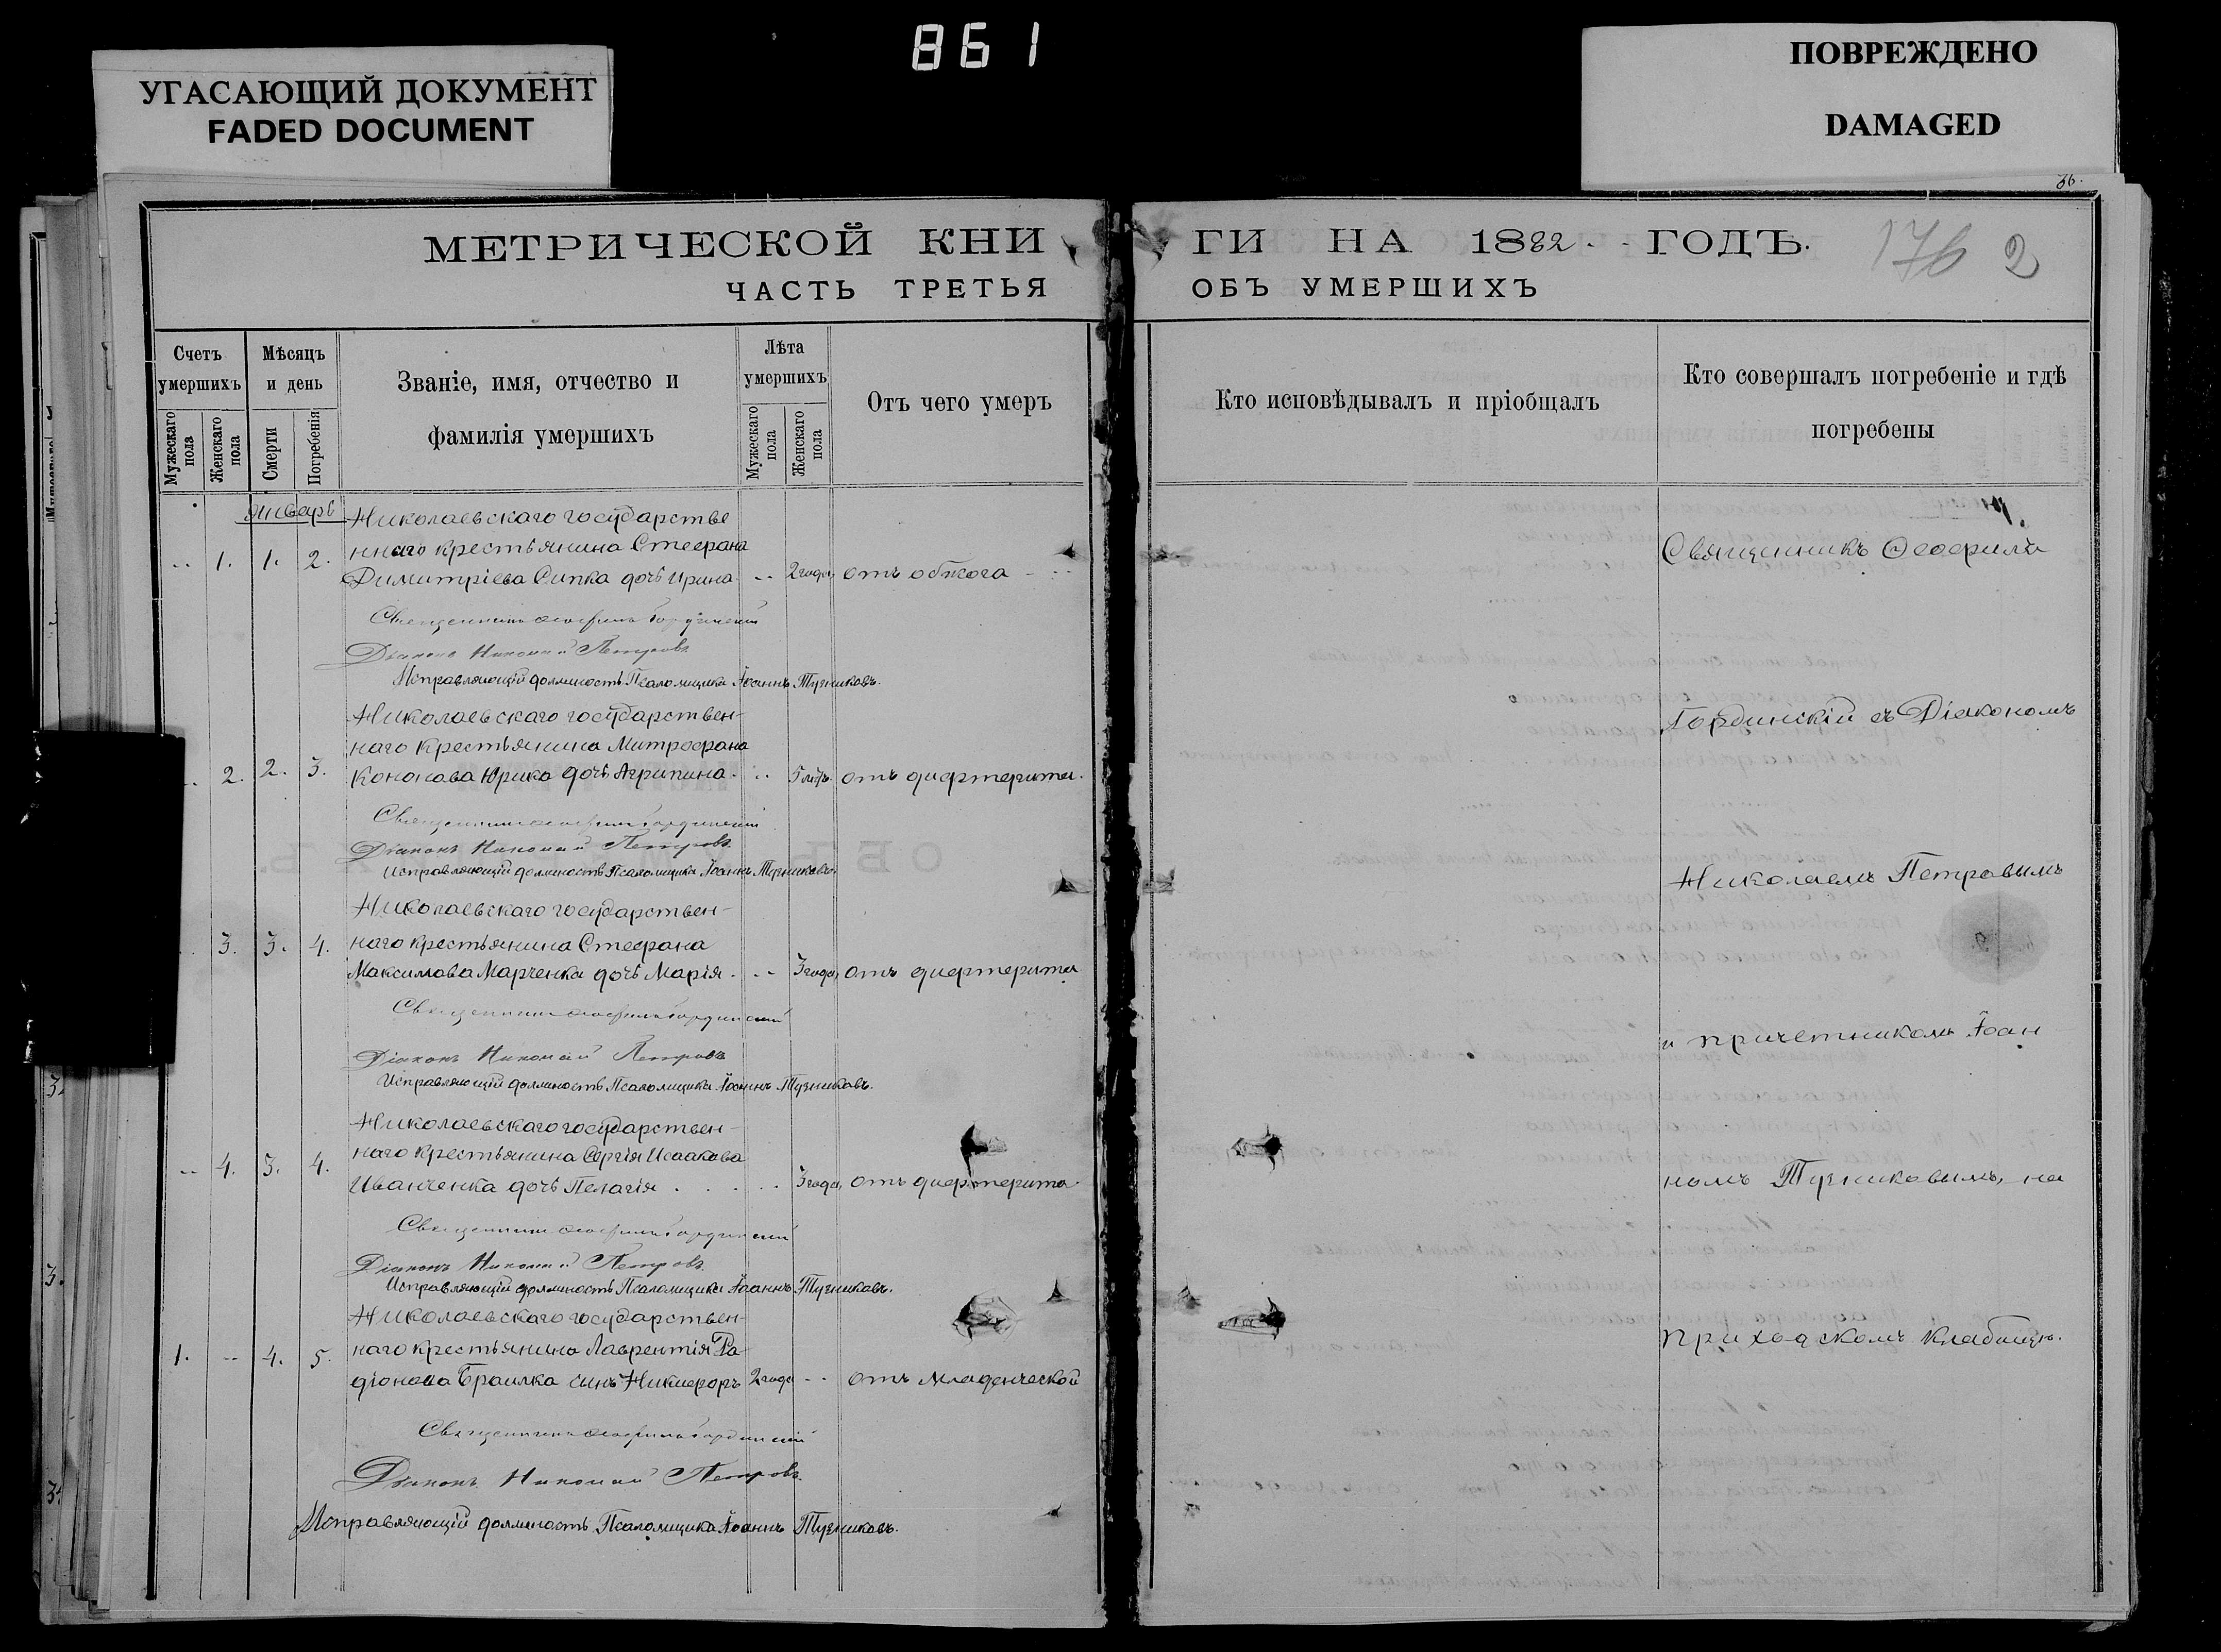 861
УГАСАЮЩИЙ ДОКУМЕНТ
FADED DOCUMENT
ПОВРЕЖДЕНО
DAMAGED
36.
МЕТРИЧЕСКОЙ КНИ
ГИ НА 1882 ГОДЪ.
176 2
ЧАСТЬ ТРЕТЬЯ
ОБЪ УМЕРШИХЪ
Счетъ умершихъ
Мужескаго пола
Женскаго пола
Мѣсяцъ и день
Смерти
Погребенія
Званіе, имя, отчество и
фамилія умершихъ
Лѣта умершихъ
Мужескаго пола
Женскаго пола
Отъ чего умеръ
Кто исповѣдывалъ и пріобщалъ
Кто совершалъ погребеніе и гдѣ
погребены
январь
Николаевскаго государстве
ннаго крестьянина Стефана
1. 1. 2.
Димитріева Сипка дочь Ирина 2 года отъ обжога
Священникъ Ѳеофилъ Гординскій
Діаконъ Николай Петровъ
Исправляющій должность Псаломщика Іоаннъ Тузниковъ.
Николаевскаго государствен-
наго крестьянина Митрофана
2. 2. 3.
Кононова Юрика дочь Агрипина 5 лѣтъ отъ дифтерита.
Священникъ Ѳеофилъ Гординскій
Діаконъ Николай Петровъ
Исправляющій должность Псаломщика Іоаннъ Тузниковъ.
Николаевскаго государствен-
3. 3. 4. наго крестьянина Стефана
Максимова Марченка дочь Марія 3 года отъ дифтерита
Священникъ Ѳеофилъ Гординскій
Діаконъ Николай Петровъ
Исправляющій должность Псаломщика Іоаннъ Тузниковъ.
Николаевскаго государствен-
4. 3. 4. наго крестьянина Сергія Исаакова
Иванченка дочь Пелагія 3 года отъ дифтерита
Священникъ Ѳеофилъ Гординскій
Діаконъ Николай Петровъ
Исправляющій должность Псаломщика Іоаннъ Тузниковъ.
Николаевскаго государствен-
1. 4. 5. наго крестьянина Лаврентія Ра
діонова Браилка сынъ Никифоръ 2 года отъ младенческой
Священникъ Ѳеофилъ Гординскій
Діаконъ Николай Петровъ
Исправляющій должность Псаломщика Іоаннъ Тузниковъ.
Священникъ Ѳеофилъ
Гординскій съ Діакономъ
Николаемъ Петровымъ
и причетникомъ Іоан
номъ Тузниковымъ, на
приходскомъ кладбищѣ.